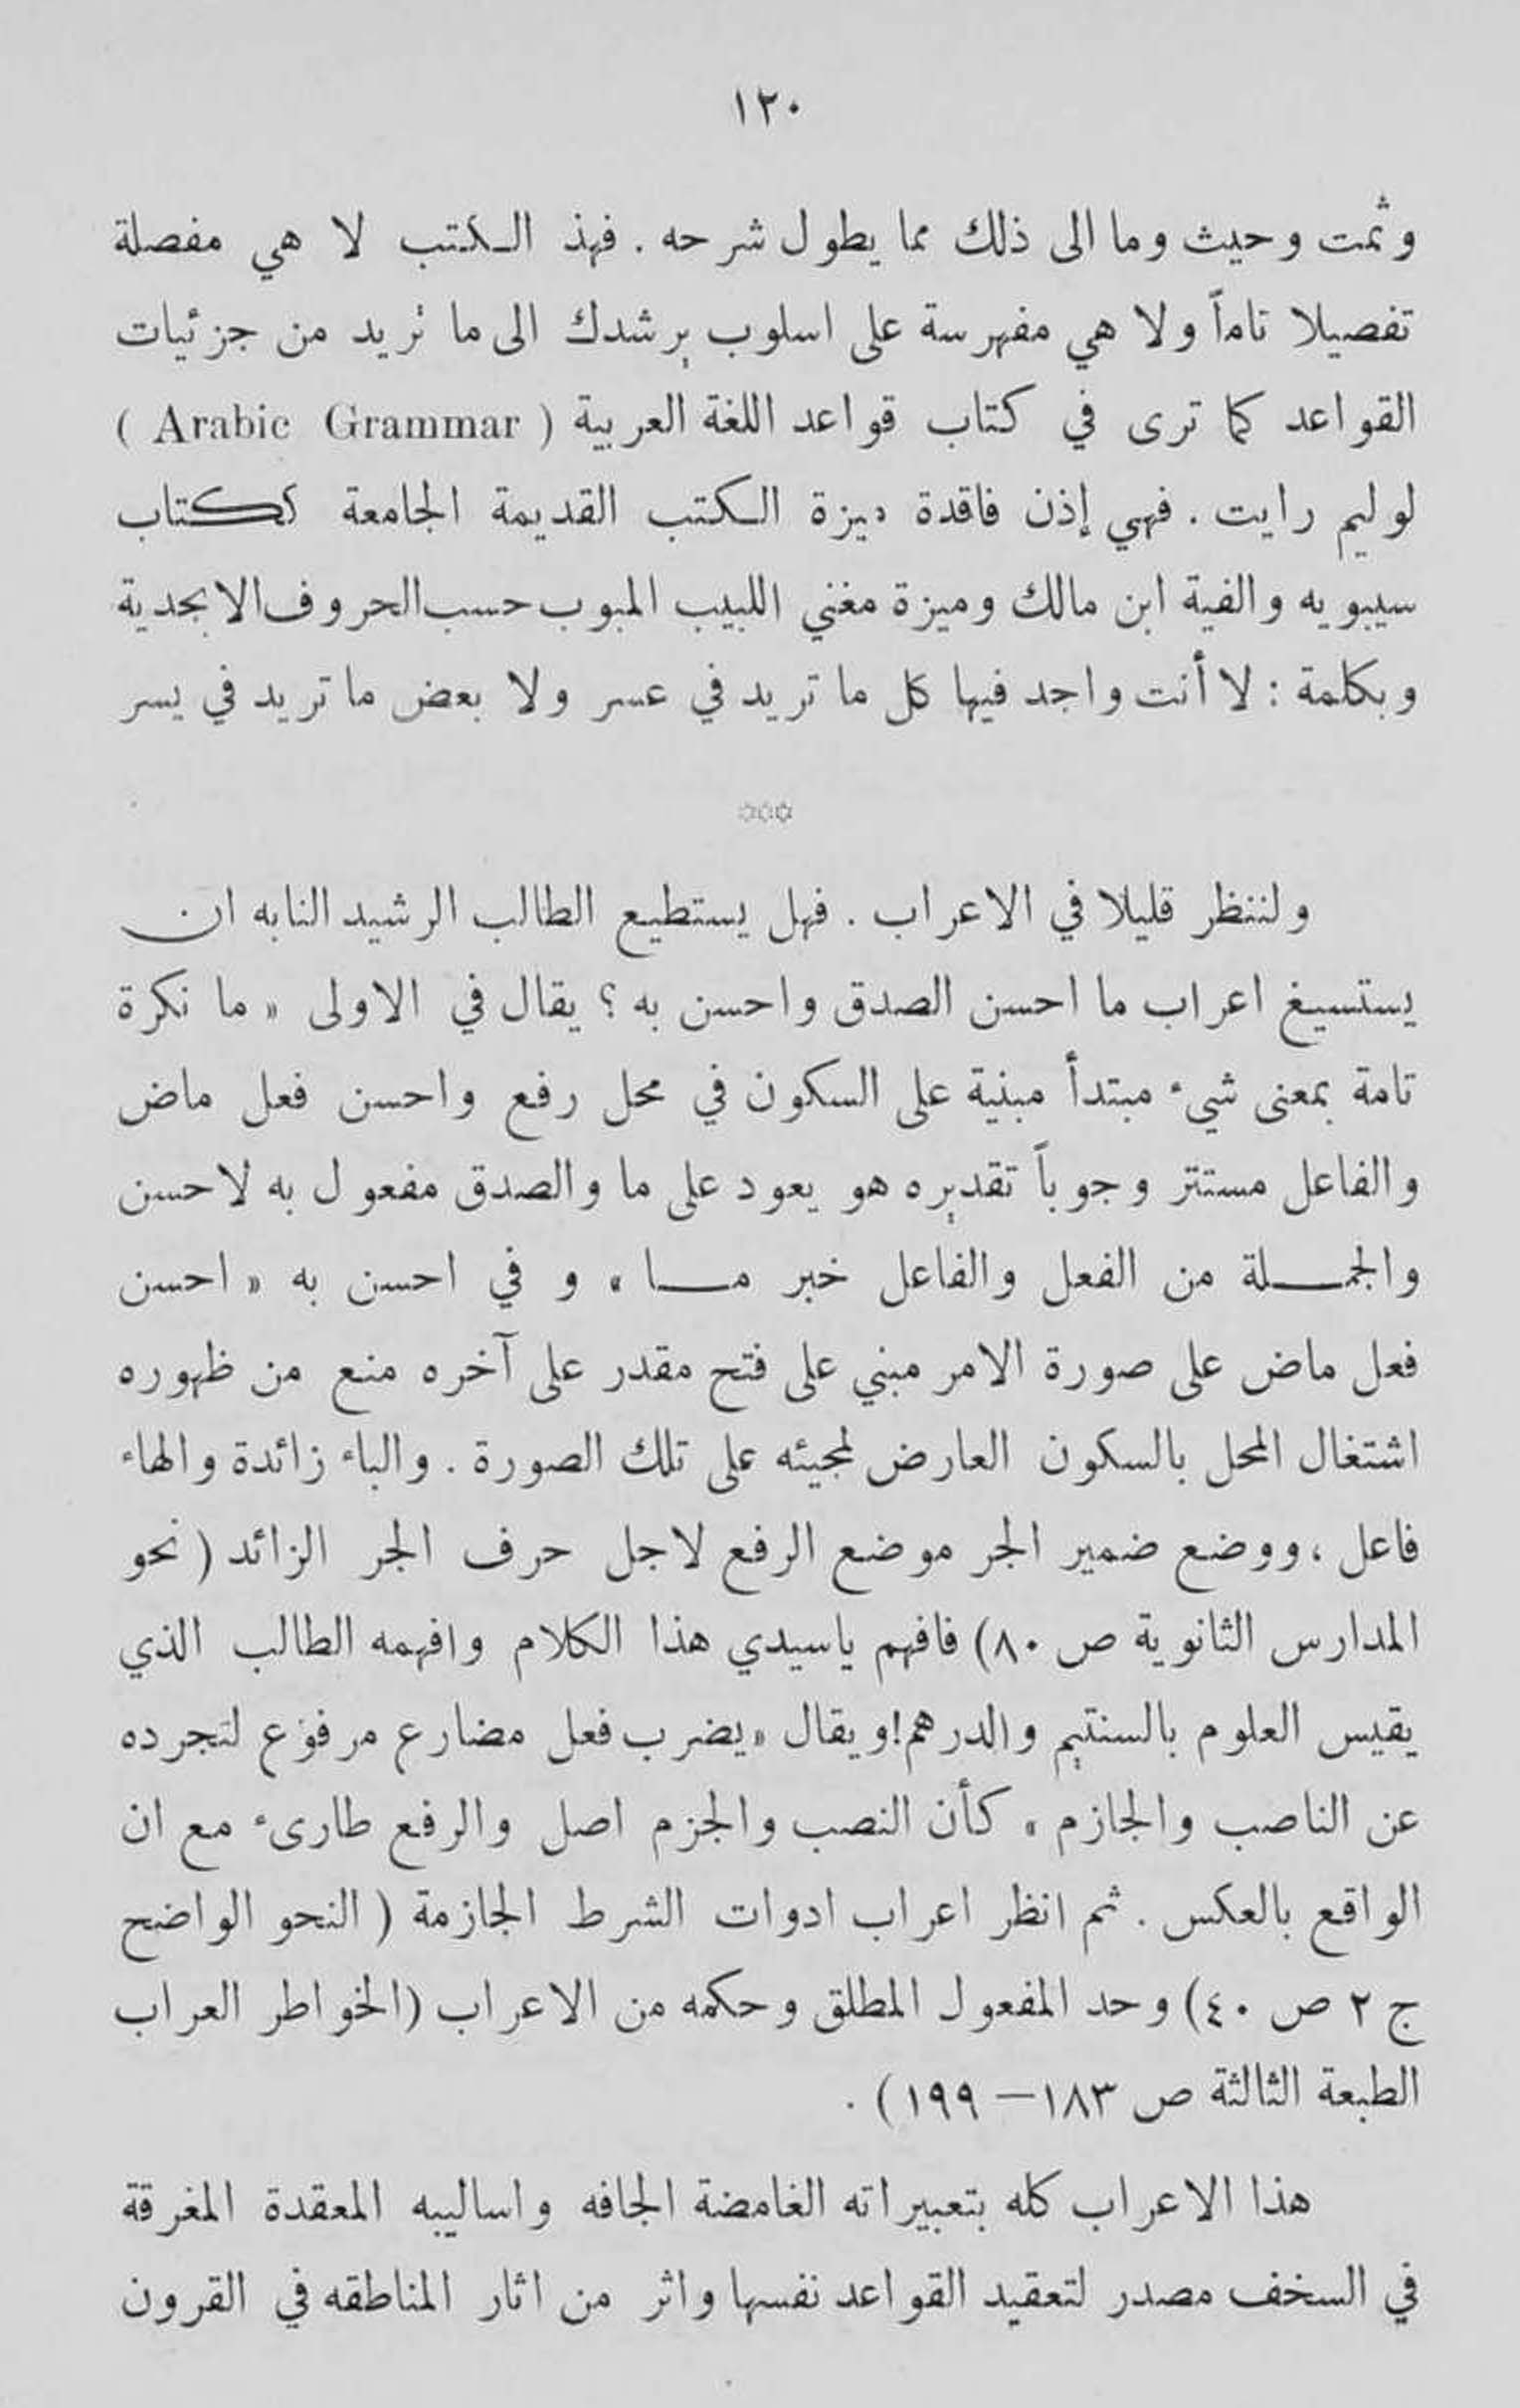 ١٢٠
وثمت وحيث وما الى ذلك مما يطول شرحه . فهذ الكتب لا هي مفصلة
تفصيلا تاماً ولا هي مفهرسة على اسلوب يرشدك الى ما تريد من جزئيات
القواعد كما ترى في كتاب قواعد اللغة العربية ( Arabic Grammar )
لوليم رايت . فهي إذن فاقدة ميزة الكتب القديمة الجامعة ككتاب
سيبويه والفية ابن مالك وميزة مغني اللبيب المبوب حسب الحروف الابجدية
وبكلمة : لا أنت واجد فيها كل ما تريد في عسر ولا بعض ما تريد في يسر
***
ولننظر قليلا في الاعراب . فهل يستطيع الطالب الرشيد النابه ان
يستسيغ اعراب ما احسن الصدق واحسن به ؟ يقال في الاولى « ما نكرة
تامة بمعنى شيء مبتدأ مبنية على السكون في محل رفع واحسن فعل ماض
والفاعل مستتر وجوباً تقديره هو يعود على ما والصدق مفعول به لاحسن
والجملة من الفعل والفاعل خبر ما » و في احسن به « احسن
فعل ماض على صورة الامر مبني على فتح مقدر على آخره منع من ظهوره
اشتغال المحل بالسكون العارض لمجيئه على تلك الصورة . والباء زائدة والهاء
فاعل ، ووضع ضمير الجر موضع الرفع لاجل حرف الجر الزائد ( نحو
المدارس الثانوية ص ٨٠) فافهم ياسيدي هذا الكلام وافهمه الطالب الذي
يقيس العلوم بالسنتيم والدرهم! ويقال « يضرب فعل مضارع مرفوع لتجرده
عن الناصب والجازم » كأن النصب والجزم اصل والرفع طارىء مع ان
الواقع بالعكس . ثم انظر اعراب ادوات الشرط الجازمة ( النحو الواضح
ج ٢ ص ٤٠) وحد المفعول المطلق وحكمه من الاعراب (الخواطر العراب
الطبعة الثالثة ص ١٨٣ — ١٩٩ ) .
هذا الاعراب كله بتعبيراته الغامضة الجافه واساليبه المعقدة المغرقة
في السخف مصدر لتعقيد القواعد نفسها واثر من اثار المناطقه في القرون